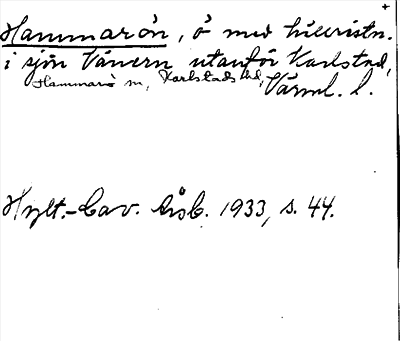 +
Hammarön, ö med hällristn.
i sjön Vänern utanför Karlstad,
Hammarö sn, Karlstads hd, Värml. l.
Hylt.-Cav. årsb. 1933, s. 44.